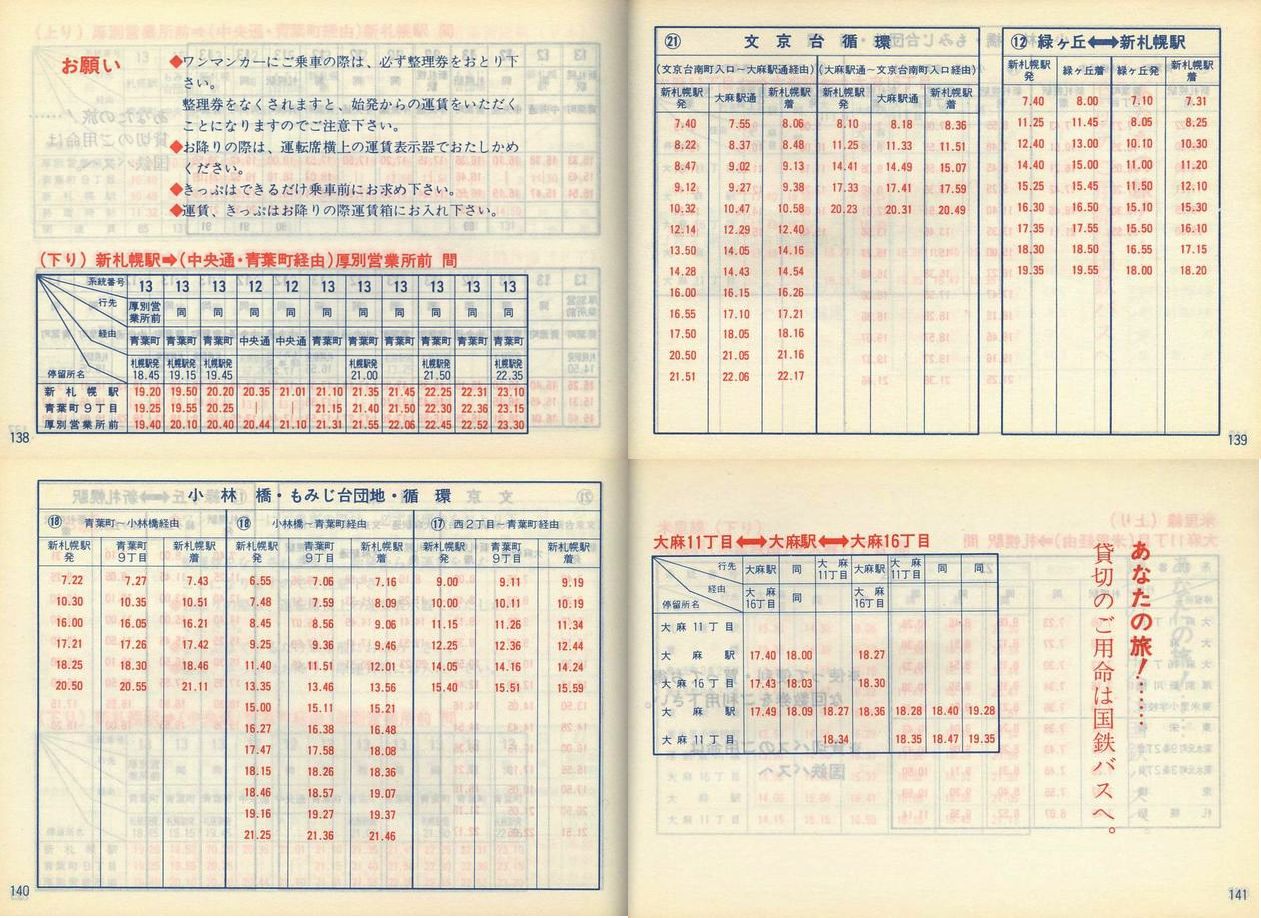 お願い
◆ワンマンカーにご乗車の際は、必ず整理券をおとり下
さい。
整理券をなくされますと、始発からの運賃をいただく
ことになりますのでご注意下さい。
◆お降りの際は、運転席横上の運賃表示器でおたしかめ
ください。
◆きっぷはできるだけ乗車前にお求め下さい。
◆運賃、きっぷはお降りの際運賃箱にお入れ下さい。
(下り) 新札幌駅➡(中央通・青葉町経由)厚別営業所前 間
系統番号 13 13 13 12 12 13 13 13 13 13 13
行先 厚別営業所前 同 同 同 同 同 同 同 同 同 同
経由 青葉町 青葉町 青葉町 中央通 中央通 青葉町 青葉町 青葉町 青葉町 青葉町 青葉町
停留所名 札幌駅発18.45 札幌駅発19.15 札幌駅発19.45 札幌駅発21.00 札幌駅発21.50 札幌駅発22.35
新札幌駅 19.20 19.50 20.20 20.35 21.01 21.10 21.35 21.45 22.25 22.31 23.10
青葉町9丁目 19.25 19.55 20.25 | | 21.15 21.40 21.50 22.30 22.36 23.15
厚別営業所前 19.40 20.10 20.40 20.44 21.10 21.31 21.55 22.06 22.45 22.52 23.30
138
㉑ 文京台循環
(文京台南町入口~大麻駅通経由) (大麻駅通~文京台南町入口経由)
新札幌駅発 大麻駅通 新札幌駅着 新札幌駅発 大麻駅通 新札幌駅着
7.40 7.55 8.06 8.10 8.18 8.36
8.22 8.37 8.48 11.25 11.33 11.51
8.47 9.02 9.13 14.41 14.49 15.07
9.12 9.27 9.38 17.33 17.41 17.59
10.32 10.47 10.58 20.23 20.31 20.49
12.14 12.29 12.40
13.50 14.05 14.16
14.28 14.43 14.54
16.00 16.15 16.26
16.55 17.10 17.21
17.50 18.05 18.16
20.50 21.05 21.16
21.51 22.06 22.17
⑫ 緑ヶ丘⟷新札幌駅
新札幌駅発 緑ヶ丘着 緑ヶ丘発 新札幌駅着
7.40 8.00 7.10 7.31
11.25 11.45 8.05 8.25
12.40 13.00 10.10 10.30
14.40 15.00 11.00 11.20
15.25 15.45 11.50 12.10
16.30 16.50 15.10 15.30
17.35 17.55 15.50 16.10
18.30 18.50 16.55 17.15
19.35 19.55 18.00 18.20
139
小林橋・もみじ台団地・循環
⑱ 青葉町~小林橋経由 ⑱ 小林橋~青葉町経由 ⑰ 西2丁目~青葉町経由
新札幌駅発 青葉町9丁目 新札幌駅着 新札幌駅発 青葉町9丁目 新札幌駅着 新札幌駅発 青葉町9丁目 新札幌駅着
7.22 7.27 7.43 6.55 7.06 7.16 9.00 9.11 9.19
10.30 10.35 10.51 7.48 7.59 8.09 10.00 10.11 10.19
16.00 16.05 16.21 8.45 8.56 9.06 11.15 11.26 11.34
17.21 17.26 17.42 9.25 9.36 9.46 12.25 12.36 12.44
18.25 18.30 18.46 11.40 11.51 12.01 14.05 14.16 14.24
20.50 20.55 21.11 13.35 13.46 13.56 15.40 15.51 15.59
15.00 15.11 15.21
16.27 16.38 16.48
17.47 17.58 18.08
18.15 18.26 18.36
18.46 18.57 19.07
19.16 19.27 19.37
21.25 21.36 21.46
140
大麻11丁目⟷大麻駅⟷大麻16丁目
行先 大麻駅 同 大麻11丁目 大麻駅 大麻11丁目 同 同
経由 大麻16丁目 同 大麻16丁目
停留所名
大麻11丁目
大麻駅 17.40 18.00 18.27
大麻16丁目 17.43 18.03 18.30
大麻駅 17.49 18.09 18.27 18.36 18.28 18.40 19.28
大麻11丁目 18.34 18.35 18.47 19.35
あなたの旅!……
貸切のご用命は国鉄バスへ。
141